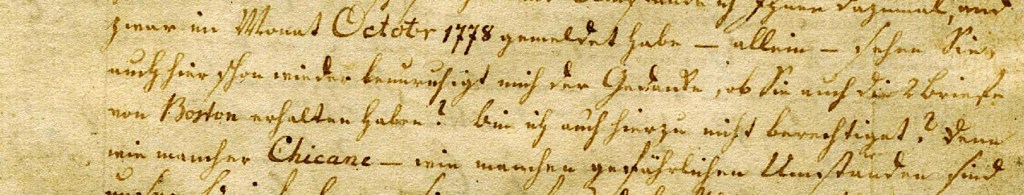 ich Ihnen dazumal, und
zwar im Monat October 1778 gemeldet habe — allein — sehen Sie,
auch hier schon wieder beunruhigt mich der Gedanke, ob Sie auch die 2 Briefe
von Boston erhalten haben? bin ich auch hierzu nicht berechtiget? Denn
wie mancher Chicane — wie manchen gefährlichen Umständen sind